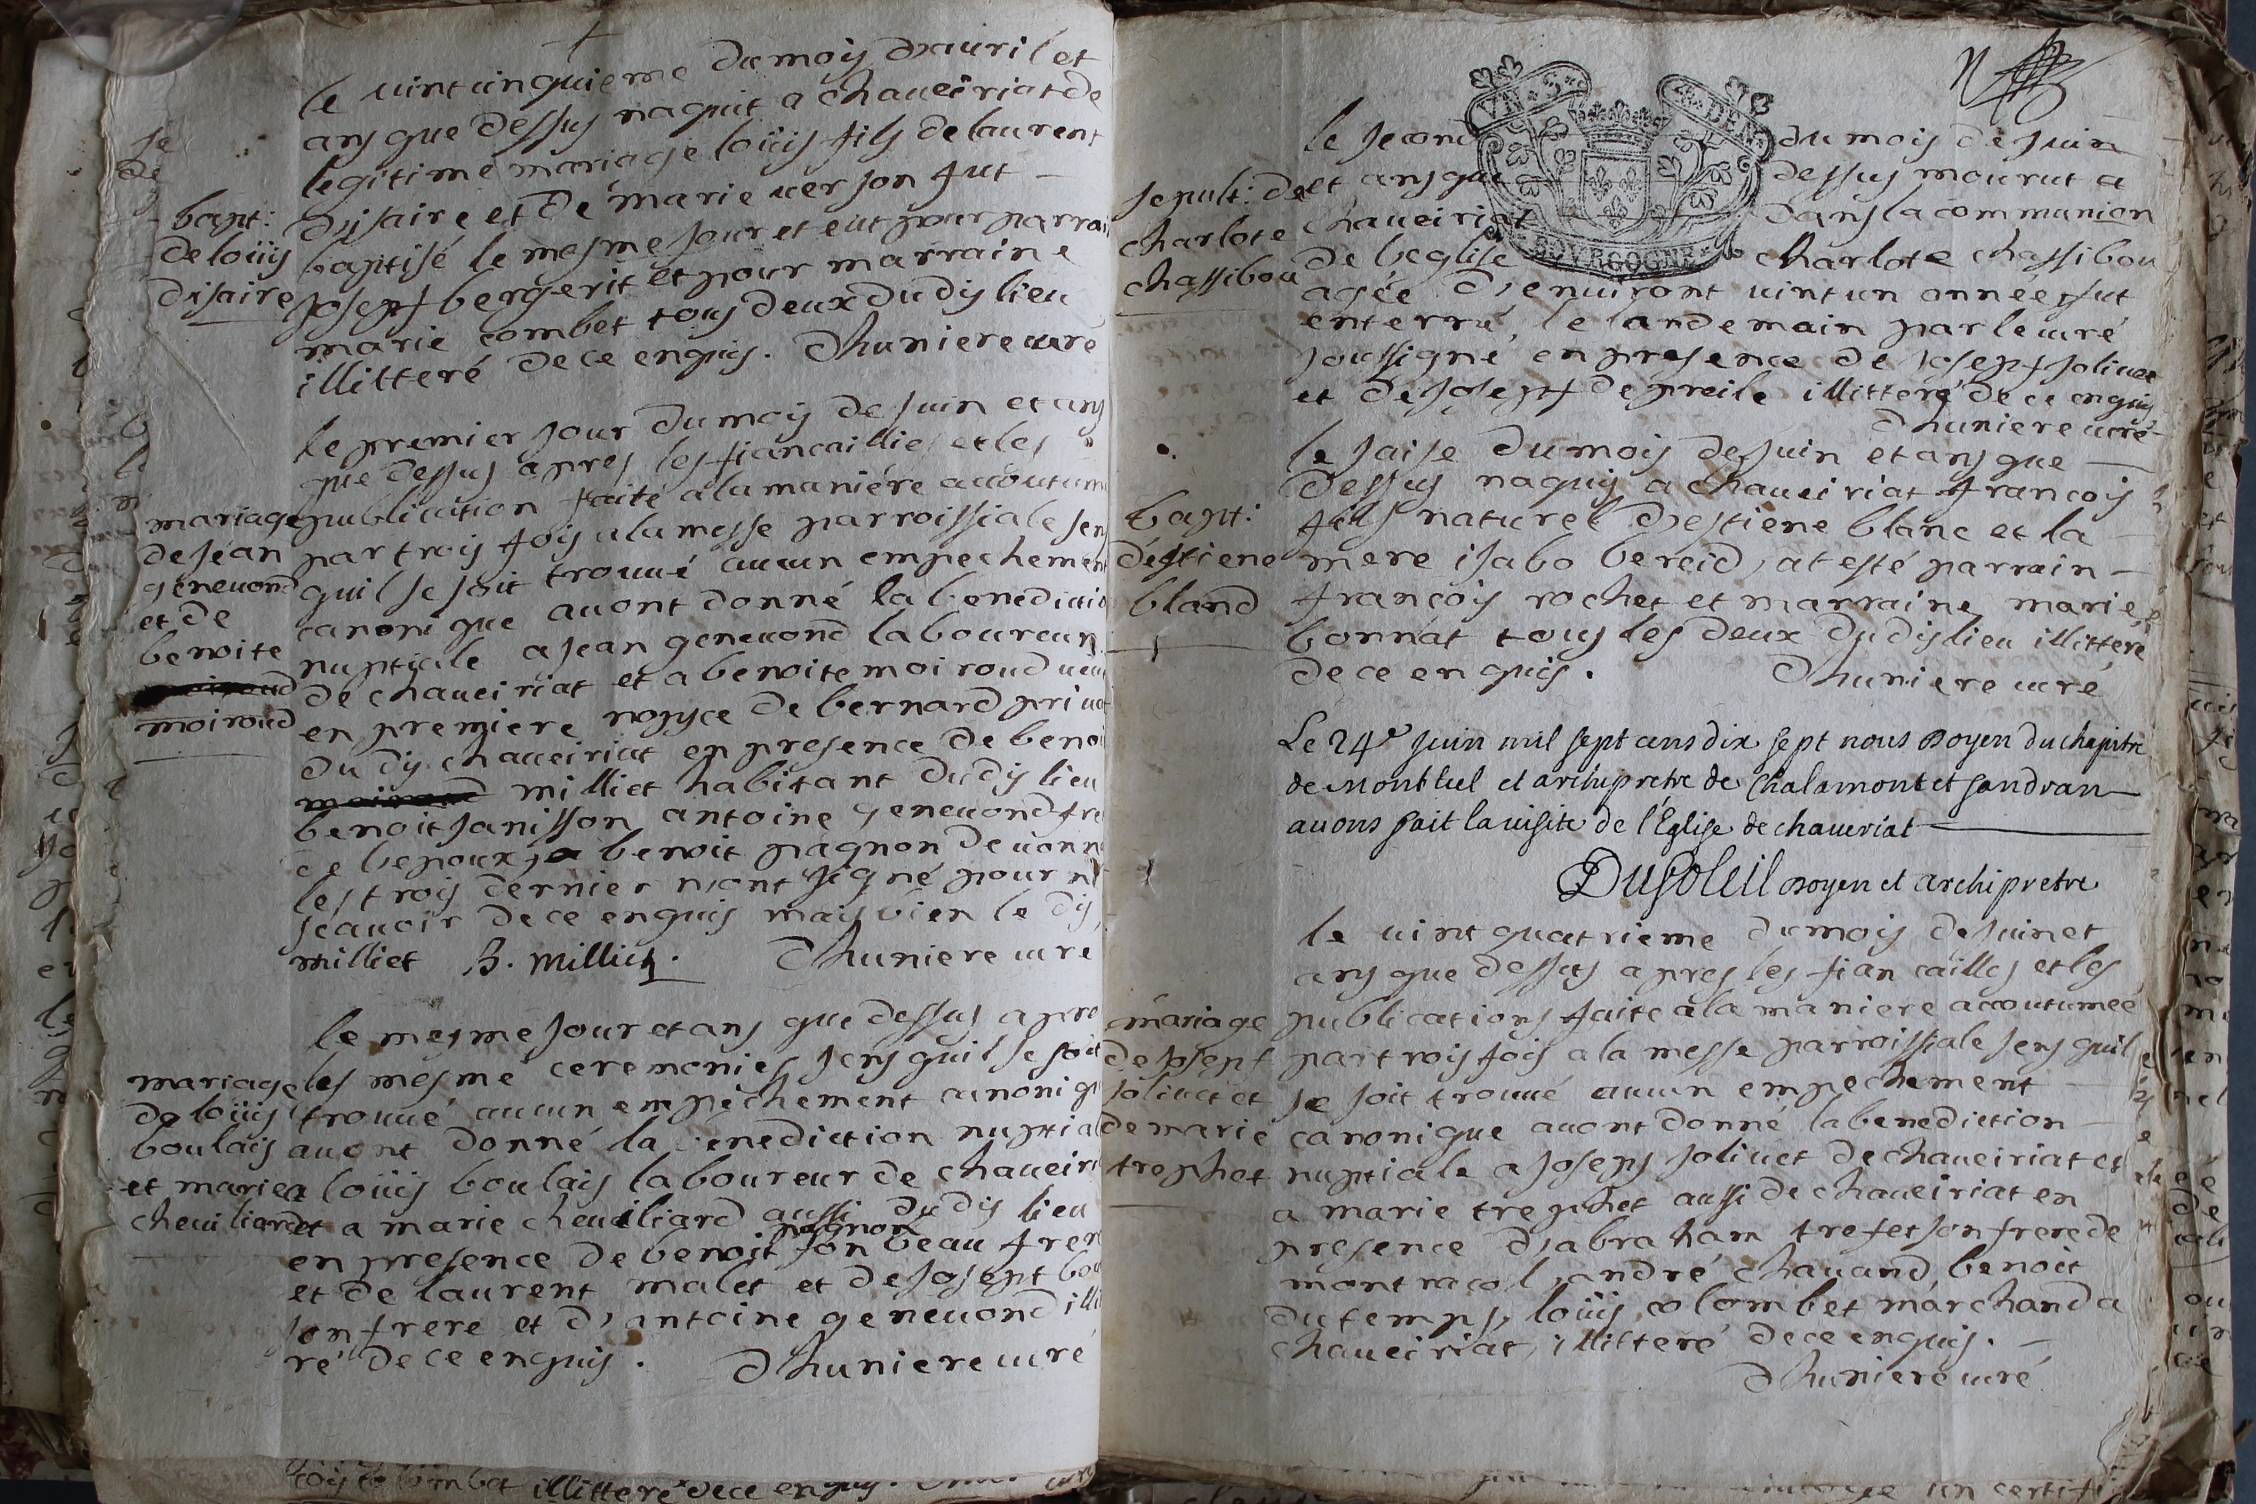 le vintcinquieme du mois d'auril et
ans que dessus naquit a chaueiriat de
legitime mariage loüis fils de laurent
disaire et de marie uerson fut
bapt:
de loüis
disaire
baptisé le mesme jour et eut pour parrai
josept bergerit et pour marraine
marie combet tous deux dudis lieu
illitteré de ce enquis. Dhuniere curé
le premier jour du mois de juin et ans
que dessus apres les fiancaillies et les
mariage
de jéan
geneuond
et de
benoite
moiroud
publication faite a la maniére accoutume
par trois fois a la messe parroissiale sens
quil se soit trouué aucun empechement
canonique auont donné la benedictio
nuptiale a jean geneuond laboureur
de chaueiriat et a benoite moiroud ueuu
en premiere nopce de bernard priuat
dudis chaueiriat en presence de benoi
milliet habitant dudis lieu
benoit janisson antoine geneuond fre
de lepoux, benoit pagnon de uonn
les trois dernier n'ont signé pour ne
scauoir de ce enquis mais bien le dis
milliet B. Milliet. Dhuniere curé
le mesme jour et ans que dessus apre
mariage
de loüis
boulais
et marie
cheuiliard
les mesme ceremonies sens quil se soit
trouué aucun empéchement canoniqu
auont donné la benediction nuptial
a loüis boulais laboureur de chaueiri
et a marie cheuiliard aussi dudis lieu
en presence de benoit pagnon son beau frere
et de laurent malet et de josept bou
son frere et d'antoine geneuond illi
ré de ce enquis. Dhuniere curé
VN. S. DEN.
BOVRGOGNE
le second du mois de juin
sepult: de
charlote
chassibou
et ans que dessus mourut a
chaueiriat dans la communion
de l'eglise charlote chassibou
agée d'enuiront uintun années fut
enterré le landemain par le curé
soussigné en presence de josept joliuet
et de josept depreile illitteré de ce enquis
Dhuniere curé
le saise du mois de juin et ans que
dessus naquis a chaueiriat francois
bapt:
d'éstiene
bland
fils naturel d'estiene blanc et la
mere isabo bereid, at esté parrain
francois rochet et marraine marie
bonnat tous les deux dudis lieu illitteré
de ce enquis. Dhuniere curé
Le 24e juin mil sept cens dix sept nous Doyen du chapitre
de Montluel et archipretre de Chalamont et sandran
auons fait la uisite de l'Église de chaueriat
DuSoleil Doyen et archipretre
le uint quatrieme du mois de juin et
ans que dessus apres les fiancailles et les
mariage
de josept
joliuet et
de marie
trephet
publications faite a la maniere accoutumeé
par trois fois a la messe parroissiale sens quil
se soit trouué aucun empechement
canonique auont donné la benediction
nuptiale a josept joliuet de chaueiriat et
a marie trephet aussi de chaueiriat en
presence d'abraham trefet son frere de
montracol, andré chauand, benoit
dutemps, loüis colombet marchand a
chaueiriat, illitteré de ce enquis.
Dhuniere curé
illitteré de ce enquis.
un certifi